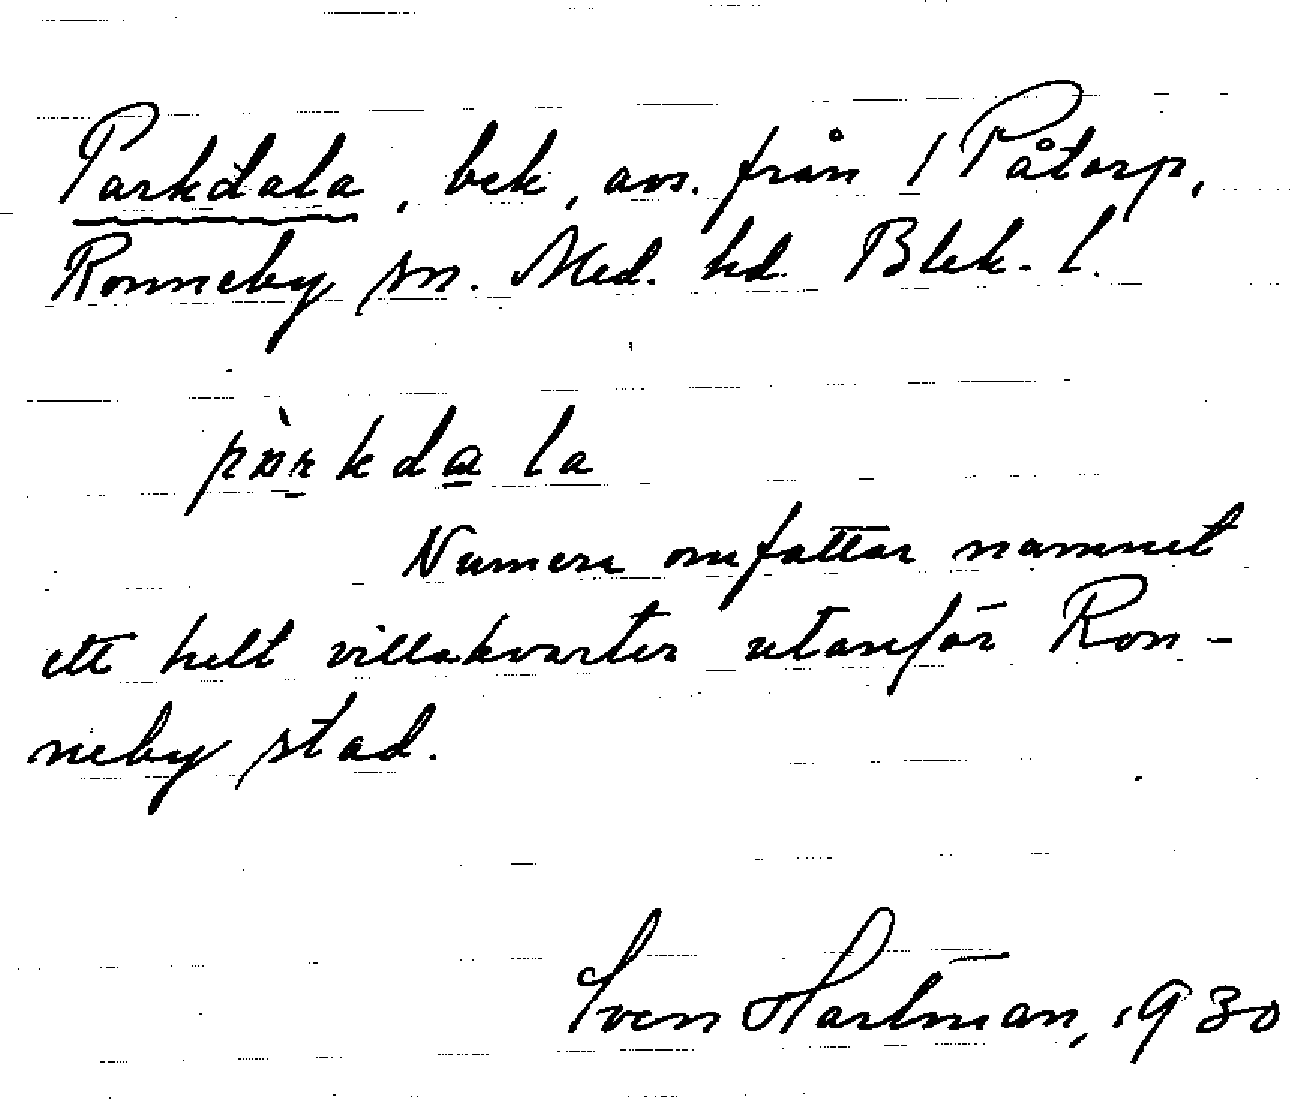 Parkdala, bek, avs. från 1 Påtorp,
Ronneby sn. Med. hd. Blek. l.
Numera omfattar namnet
ett helt villakvarter utanför Ron-
neby stad.
Sven Hartman, 1930